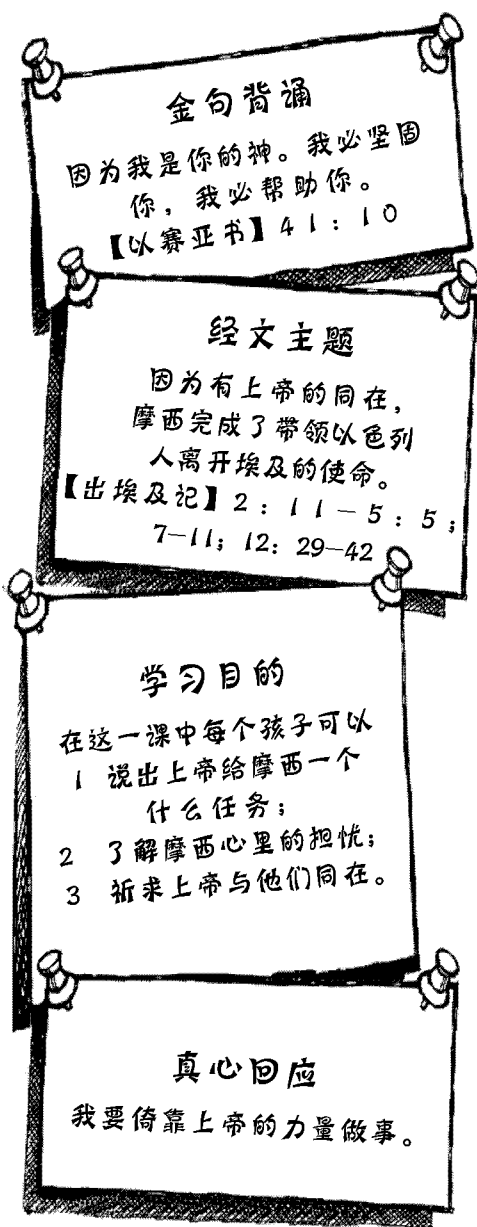 金句背诵
因为我是你的神。我必坚固
你，我必帮助你。
【以赛亚书】41：10
经文主题
因为有上帝的同在，
摩西完成了带领以色列
人离开埃及的使命。
【出埃及记】2：11－5：5；
7—11；12：29—42
学习目的
在这一课中每个孩子可以
1 说出上帝给摩西一个
什么任务；
2 了解摩西心里的担忧；
3 祈求上帝与他们同在。
真心回应
我要倚靠上帝的力量做事。